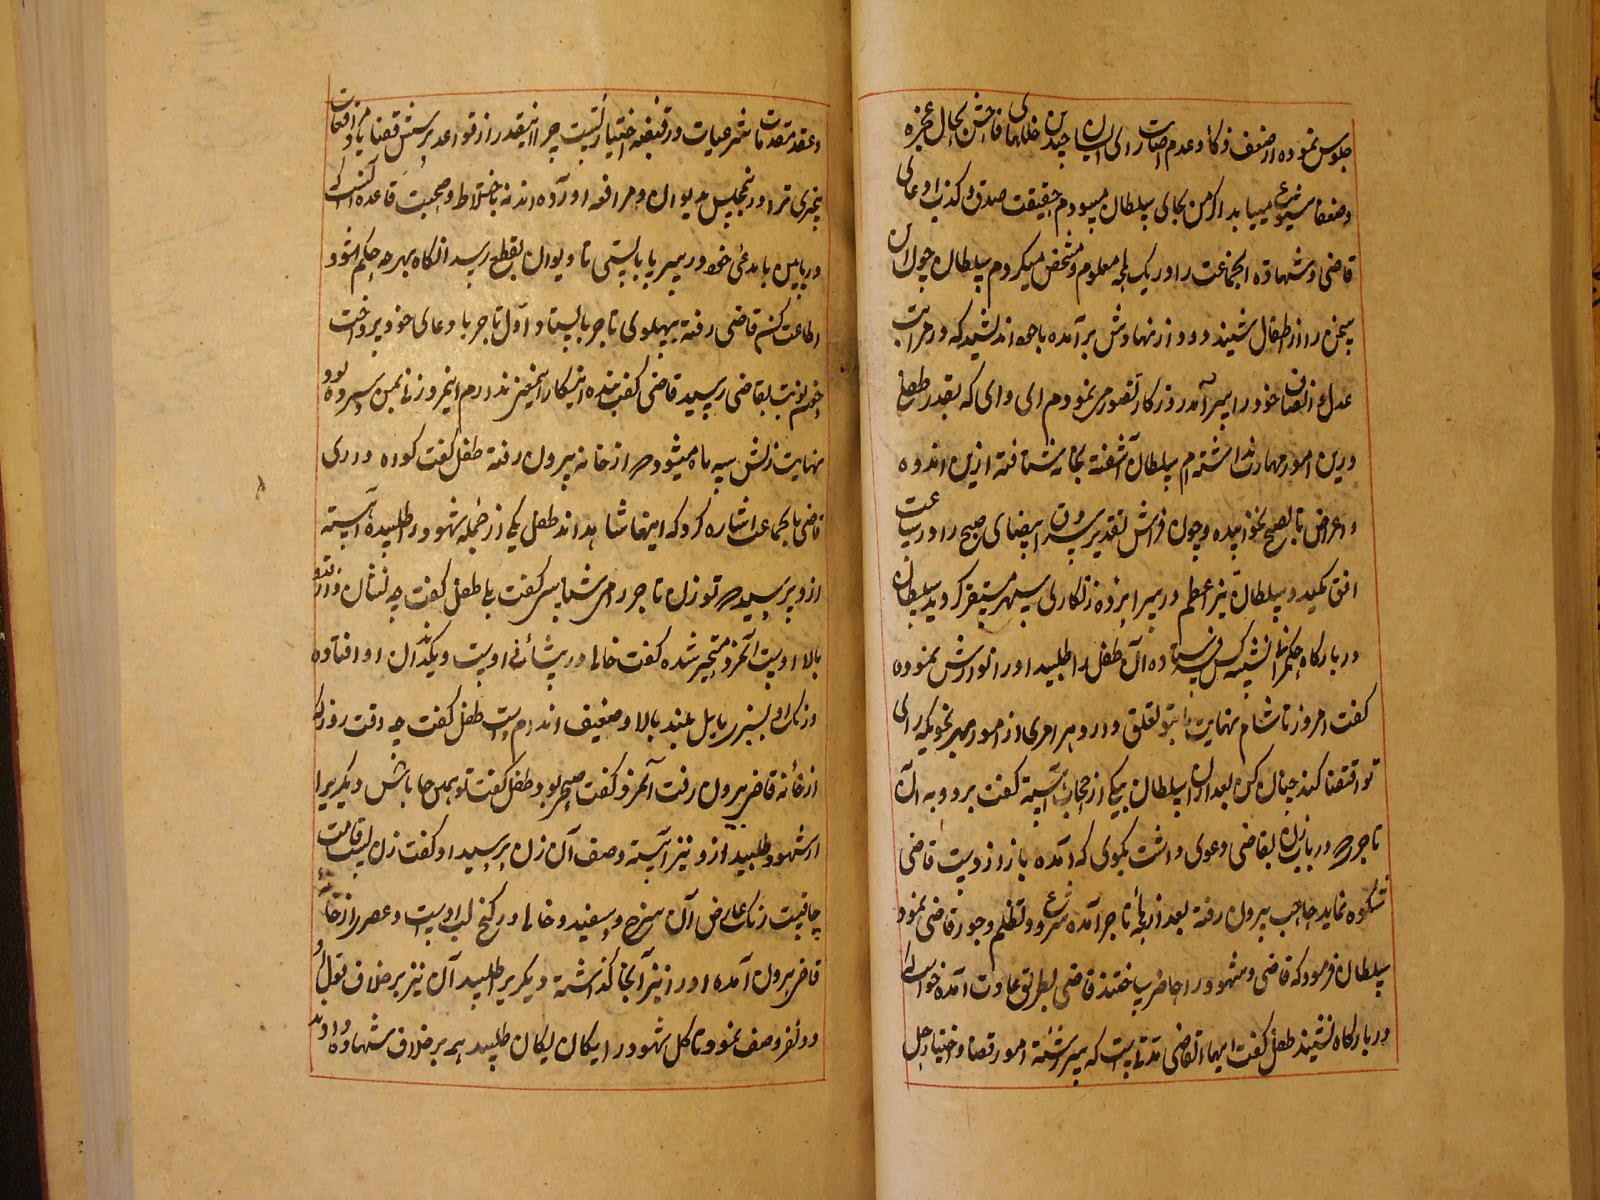 جلوس نموده از ضعف ذکا و عدم اصابت رای ایشان چندین خللهای فاحش بحال عجزه
و ضعفا شیوع مییابد اگر من بجای سلطان میبودم حقیقت صدق و کذب دعای
قاضی و شهادة الجماعت را در یک لمحه معلوم و مشخص میکردم سلطان چون این
سخن را از اطفال شنید دود از نهادش برآمده با خود اندیشید که در مراتب
عدل و انصاف خود را سرآمد روزگار تصور مینمودم ای وای که بقدر طفلی
درین امور مهارت نداشته‌ام سلطان آشفته بخانه شتافته ازین اندوه
و اعراض تا بصبح نخوابیده و چون فراش تقدیر بیضای صبح را در ساعت
افق کشید و سلطان نیر اعظم در سرابرده زنگاری سپهر مستقر گردید سلطان
در بارگاه حکمرانی نشسته کس فرستاده آن طفل را طلبید او را نوازش نموده
گفت امروز تا شام نهایت بتو تعلق دارد و هر امری از امور بهر نحویکه رای
تو اقتضا کند چنان کن بعد ازان سلطان بیکی از حجاب آهسته گفت برو و به آن
تاجر که در باب زن بقاضی دعوی داشت بگوی که آمده باز از دست قاضی
شکوه نماید حاجب بیرون رفته بعد از لمحه تاجر آمده شروع در تظلم و جور قاضی نمود
سلطان فرمود که قاضی و شهود را حاضر ساختند قاضی بطریق عادت آمده خواست که
در بارگاه نشیند طفل گفت ایها القاضی مدتی است که سررشته امور قضا و اختیار حل
و عقد مقدمات شرعیات در قبضه اختیار تست چرا اینقدر از قواعد پرسش قضایا و مرافعات
بیخبری ترا درین مجلس بدیوان و مرافعه آورده‌اند نه باختلاط و صحبت قاعده آنست که
در پایین با مدعی خود در سر پا بایستی تا دیوان بقطع رسد آنگاه بهر چه حکم شود
اطاعت کنی قاضی رفته بپهلوی تاجر بایستاد و اول تاجر با دعای خود پرداخت
و چون نوبت بقاضی رسید قاضی گفت بنده اینکار را تمیز ندارم این مرد زنی بمن سپرده بود
نهایت زنش سه ماه میشود که از خانه بیرون رفته طفل گفت گواه داری
قاضی بجماعت اشاره کرد که اینها شاهداند طفل یکی از جمله شهود را طلبیده آهسته
ازو پرسید که تو زن تاجر را می‌شناسی گفت بلی طفل گفت چه نشان دارد
بالا اوست آنمرد متحیر شده گفت خالی در پیشانی اوست و یک دندان او افتاده
و رنگ او بسبزی مایل بلند بالا و ضعیف اندام است طفل گفت چه وقت روز که
از خانه قاضی بیرون رفت آنمرد گفت صبح بود طفل گفت تو بهمین جا باش دیگری را
از شهود طلبید ازو نیز آهسته وصف آن زن پرسید او گفت زن پست قامت
چاقیست رنگ عارض آن سرخ و سفید و خالی در کنج لب اوست و عصر از خانه
قاضی بیرون آمده او را نیز آنجا گذاشته دیگری را طلبید آن نیز بر خلاف قول آن
دو نفر وصف نمود تا کل شهود را یکان یکان طلبید همه بر خلاف شهادة دادند